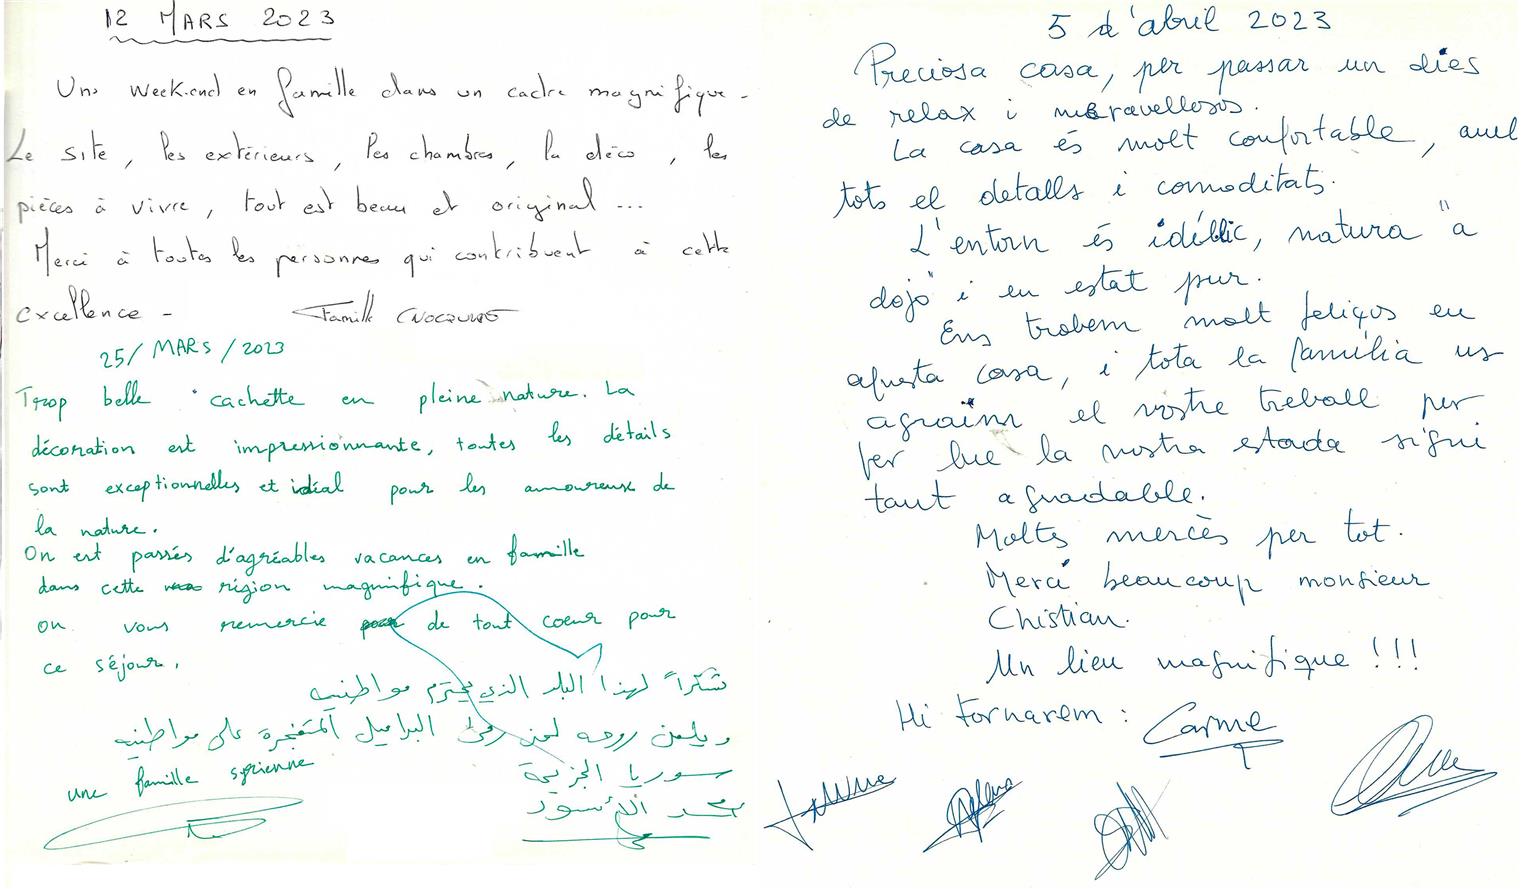 12 MARS 2023
Un weekend en famille dans un cadre magnifique -
Le site, les extérieurs, les chambres, la déco, les
pièces à vivre, tout est beau et original ...
Merci à toutes les personnes qui contribuent à cette
excellence - Famille
25/MARS/2023
Trop belle cachette en pleine nature. La
décoration est impressionnante, toutes les détails
sont exceptionnelles et idéal pour les amoureux de
la nature.
On est passés d'agréables vacances en famille
dans cette région magnifique.
on vous remercie de tout coeur pour
ce séjour.
شكراً لهذا البلد الذي يحترم مواطنيه
ويلعن روحه لمن رمى البراميل المتفجرة على مواطنيه
سوريا الجريحة
une famille syrienne
5 d'abril 2023
Preciosa casa, per passar un dies
de relax i meravellosos.
La casa és molt confortable, amb
tots el detalls i comoditats.
L'entorn és idíl·lic, natura "a
dojo" i en estat pur.
Ens trobem molt feliços en
aquesta casa, i tota la família us
agraïm el vostre treball per
fer que la nostra estada sigui
tant agradable.
Moltes mercès per tot.
Merci beaucoup monsieur
Chistian.
Un lieu magnifique !!!
Hi tornarem : Carme